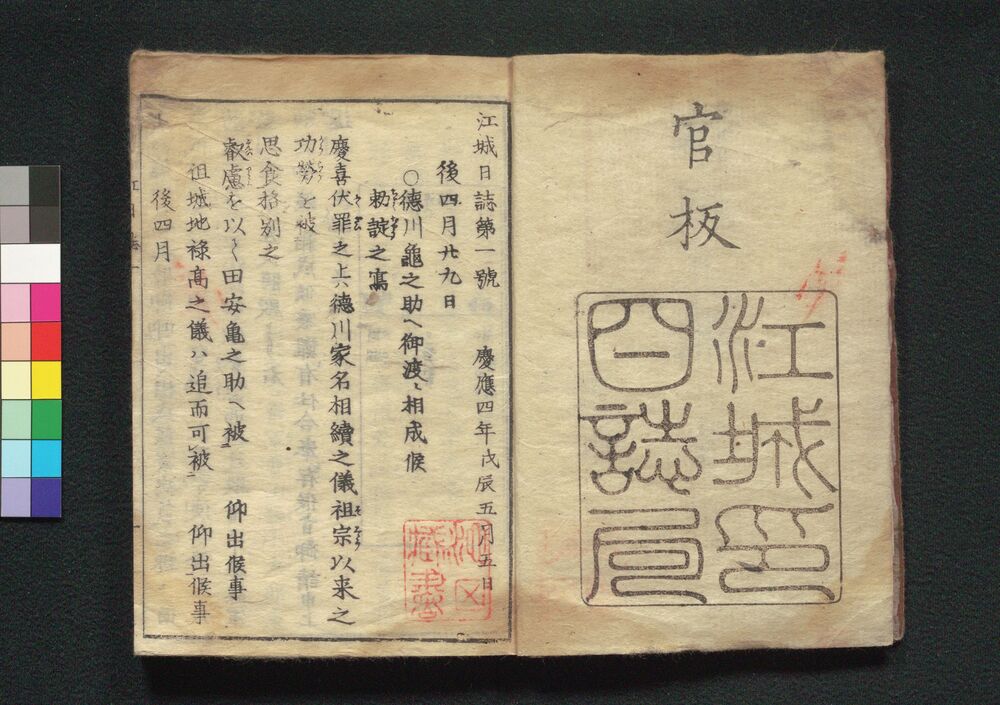 官板
江城
日誌
江城日誌第一號 慶應四年戊辰五月五日
後四月廿九日
○德川龜之助へ御渡ニ相成候
勅諚之寫
慶喜伏罪之上ハ德川家名相續之儀祖宗以来之
功勞を被
思食格別之
叡慮を以て田安亀之助へ被 仰出候事
祖城地祿高之儀ハ追而可被 仰出候事
後四月
藏書